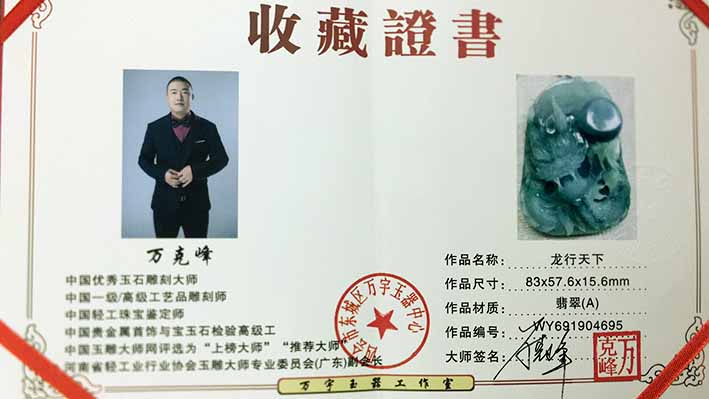 收藏證書
万克峰
中国优秀玉石雕刻大师
中国一级/高级工艺品雕刻师
中国轻工珠宝鉴定师
中国贵金属首饰与宝玉石检验高级工
中国玉雕大师网评选为“上榜大师”“推荐大师”
河南省轻工业行业协会玉雕大师专业委员会(广东)副会长
会市东城区万宇玉器中心
作品名称： 龙行天下
作品尺寸： 83x57.6x15.6mm
作品材质： 翡翠(A)
作品编号： WY691904695
大师签名：
万克峰
万宇玉器工作室